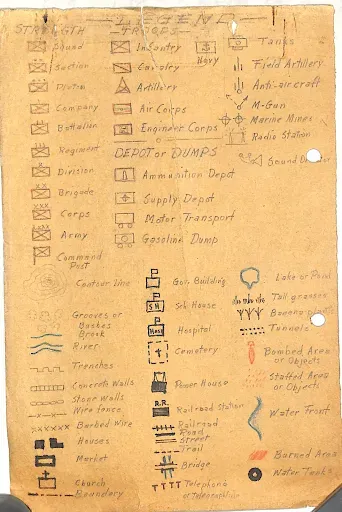 LEGEND
STRENGTH
Squad
Section
Platoon
Company
Battalion
Regiment
Division
Brigade
Corps
Army
Command
Post
TROOPS
Infantry
Cavalry
Artillery
Air Corps
Engineer Corps
Navy
DEPOT or DUMPS
Ammunition Depot
Supply Depot
Motor Transport
Gasoline Dump
Tanks
Field Artillery
Anti-aircraft
M-Gun
Marine Mines
Radio Station
Sound
Contour Line
Grooves or
Bushes
Brook
River
Trenches
Concrete Walls
Stone Walls
Wire fence
Barbed Wire
Houses
Market
Church
Boundary
Gov. Building
S.H. Sch House
Hosp. Hospital
Cemetery
Power House
R.R. Railroad Station
Railroad
Road
Street
Trail
Bridge
TTTT Telephone
or Telegraph line
Lake or Pond
Tall grasses
Banana plants
Tunnels
Bombed Area
or Objects
Staffed Area
or Objects
Water Front
Burned Area
Water Tanks